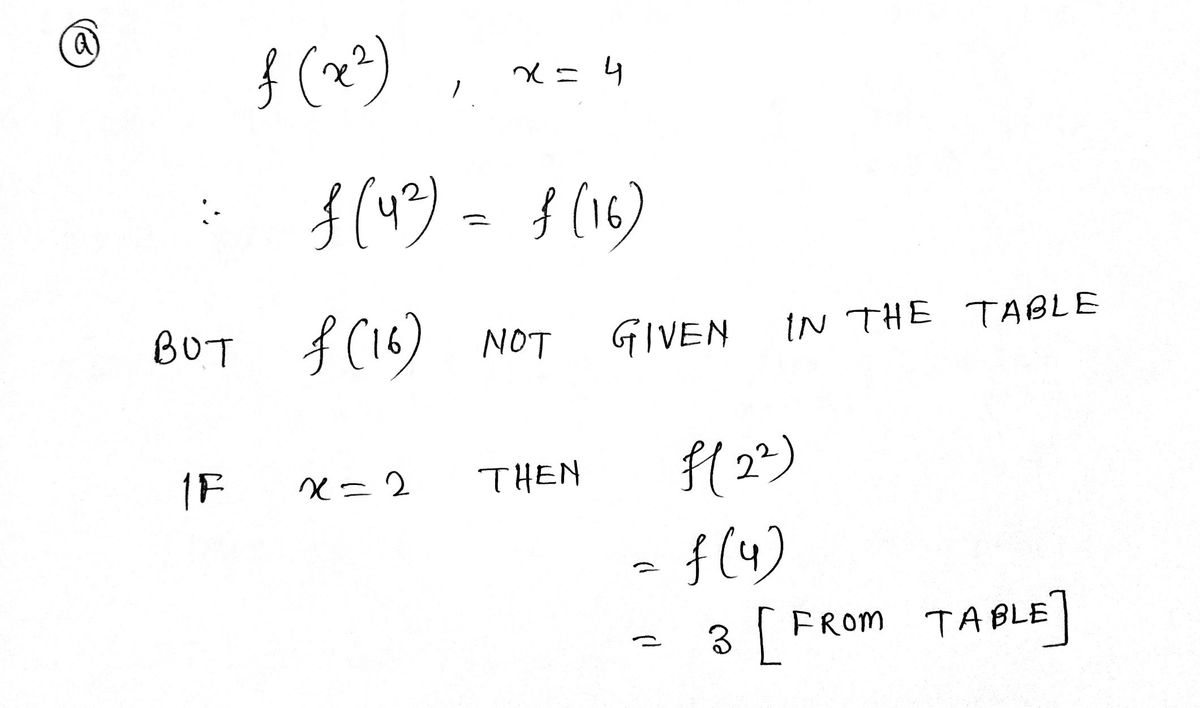 ⓐ f(x²) , x = 4
∴ f(4²) = f(16)
BUT f(16) NOT GIVEN IN THE TABLE
IF x = 2 THEN f(2²)
= f(4)
= 3 [FROM TABLE]